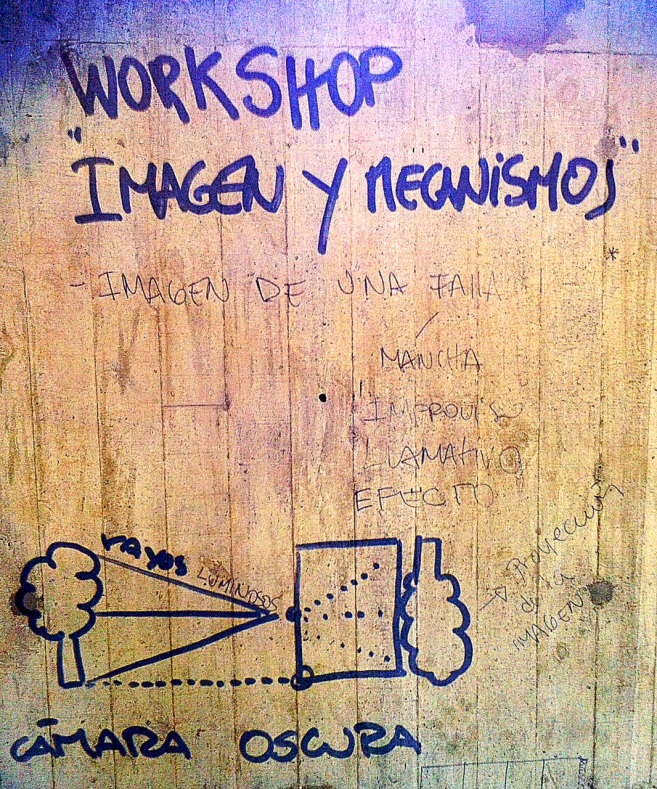 WORKSHOP
"IMAGEN Y MECANISMOS"
*
- IMAGEN DE UNA FALLA -
MANCHA
LLAMATIVO
EFECTO
rayos LUMINOSOS
Proyección
de la
IMAGEN
CÁMARA OSCURA